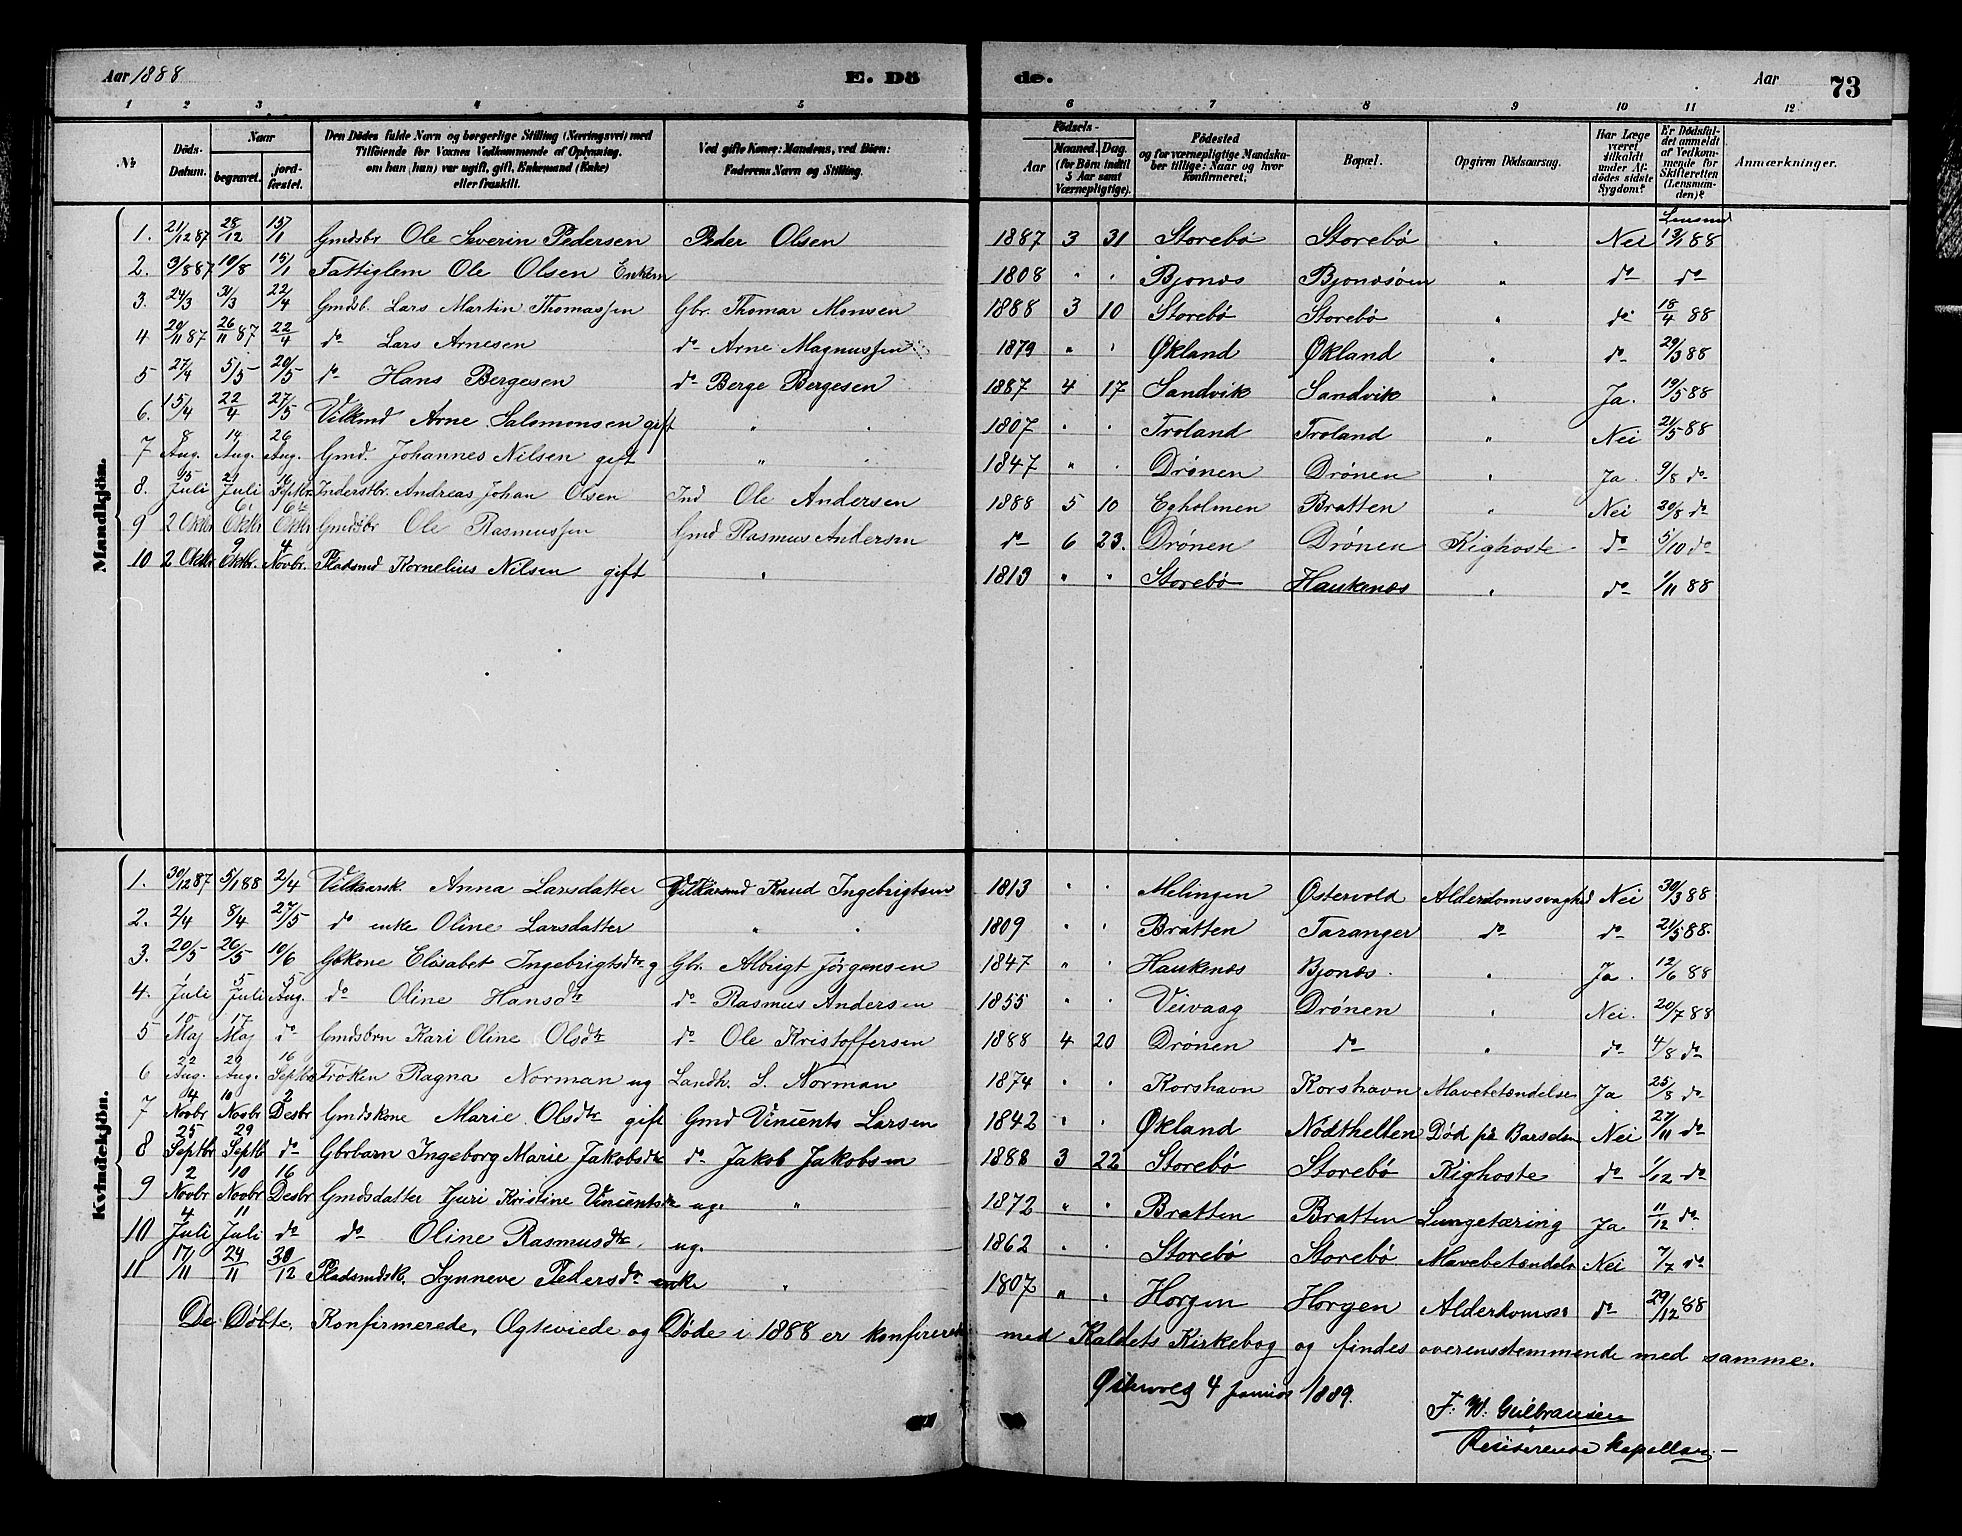 Aar 1888 E. Dö de. Aar 73
1 2 3 4 5 6 7 8 9 10 11 12
No Döds-Datum. Naar begravet. jord-fæstet. Den Dødes fulde Navn og borgerlige Stilling (Næringsvei) med Tilföiende for Voxnes Vedkommende af Oplysning, om han (hun) var ugift, gift, Enkemand (Enke) eller fraskilt. Ved gifte Koner: Mandens, ved Börn: Faderens Navn og Stilling. Födsels- Aar Maaned. Dag. (for Börn indtil 5 Aar samt Værnepligtige). Födested og for værnepligtige Mandska-ber tillige: Naar og hvor konfirmeret. Bopæl. Opgiven Dödsaarsag. Har Læge været tilkaldt under Af-dödes sidste Sygdom? Er Dødsfal-det anmeldt af Vedkom-mende for Skifteretten (Lensman-den)? Anmærkninger.
Mandkjön.
1. 21/12 87 28/12 15/1 Gmdsbr Ole Severin Pedersen Peder Olsen 1887 3 31 Storebö Storebö " Nei Lensmd 13/1 88
2. 3/8 87 10/8 15/1 Fattiglem Ole Olsen Enkem 1808 " " Bjonæs Bjonæsöen " do do
3. 24/3 31/3 22/4 Gmdsb. Lars Martin Thomassen Gbr. Thomas Monsen 1888 3 10 Storebö Storebö " do 18/4 88
4 20/11 87 26/11 87 22/4 do Lars Arnesen do Arne Magnussen 1879 " " Økland Økland " do 29/3 88
5 27/4 5/5 20/5 do Hans Bergesen do Berge Bergesen 1887 4 17 Sandvik Sandvik " Ja. 19/5 88
6. 15/4 22/4 27/5 Vilkmd Arne Salomonsen gift " " 1807 " " Troland Troland " Nei 21/5 88
7 8 Aug. 14 Aug. 26 Aug. Gmd. Johannes Nilsen gift " " 1847 " " Drönen Drönen " Ja 9/8 do
8. 15 Juli 21 Juli 16 Septbr. Inderstbr. Andreas Johan Olsen Ind Ole Andersen 1888 5 10 Egholmen Bratten " Nei 20/8 do
9 2 Oktbr 6 Oktbr Oktbr Gmdsbr Ole Rasmussen Gmd Rasmus Andersen do 6 23. Drönen Drönen Kighoste do 5/10 do
10 2 Oktbr 9 Oktbr. 4 Novbr. Pladsmd Kornelius Nilsen gift " 1813 " " Storebö Haukenæs " do 1/11 88
Kvindekjön.
1. 30/12 87 5/1 88 2/4 Vilkaarsk. Anna Larsdatter Vilkaarsmd Knud Ingebrigtsen 1813 " " Melingen Østervold Alderdomssvaghed Nei 30/3 88
2. 2/4 8/4 27/5 do enke Oline Larsdatter " " 1809 " " Bratten Taranger do do 21/5 88.
3. 20/5 26/5 10/6 Gbkone Elisabet Ingebrigtsdtr g Gbr. Albrigt Jörgensen 1847 " " Haukenæs Bjonæs. " Ja. 12/6 88
4. 1 Juli 5 Juli 5 Aug. do Oline Hansdtr do Rasmus Andersen 1855 " " Veivaag Drönen " Nei. 20/7 88
5 10 Maj 17 Maj do Gmdsbrn Kari Oline Olsdtr do Ole Kristoffersen 1888 4 20 Drönen do " do 4/8 do
6 22 Aug. 29 Aug. 16 Septbr Fröken Ragna Norman ug Landh. S. Norman 1874 " " Korshavn Korshavn Mavebetændelse Ja 25/8 do
7 4 Novbr 10 Novbr 2 Desbr Gmdskone Marie Olsdtr gift Gmd Vincents Larsen 1842 " " Økland Nödthelten Död på Barselen Nei 27/11 do
8 25 Septbr 29 Septb do Gbrbarn Ingeborg Marie Jakobsdtr do Jakob Jakobsen 1888 3 22 Storebö Storebö Kighoste do 1/12 do
9 2 Novbr 10 Novbr 16 Desbr Gmdsdatter Kristine Vincentsdtr ug. " 1872 " " Bratten Bratten Lungetæring Ja 11/12 do
10 4 Juli 11 Juli do do Oline Rasmusdtr. ug. 1862 " " Storebö Storebö Mavebetændelse Nei 7/7 do
11 17/11 24/11 30/12 Pladsmdsk. Synneve Pedersdtr enke " 1807 " " Horgen Horgen Alderdomss do 29/12 88
De Döbte, Konfirmerede, Ogteviede og Döde i 1888 er konfererede med Kaldets Kirkebog og findes overensstemmende med samme.
4 Januar 1889.
F. W. Gulbransen
Residerende kapellan. —